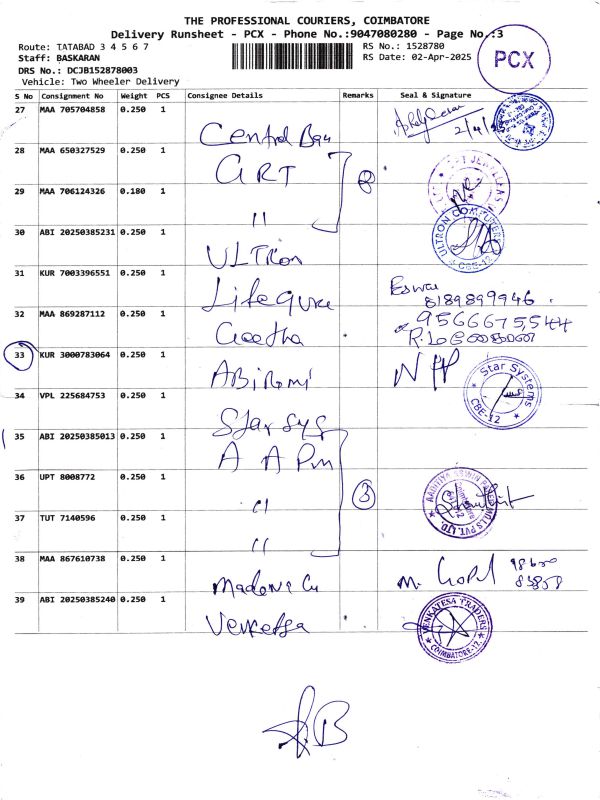 THE PROFESSIONAL COURIERS, COIMBATORE
Delivery Runsheet - PCX - Phone No.:9047080280 - Page No.:3
Route: TATABAD 3 4 5 6 7
RS No.: 1528780
Staff: BASKARAN
RS Date: 02-Apr-2025
PCX
DRS No.: DCJB152878003
Vehicle: Two Wheeler Delivery
S No Consignment No Weight PCS Consignee Details Remarks Seal & Signature
27 MAA 705704858 0.250 1
Central Ban 2/4/
28 MAA 650327529 0.250 1
GRT 2
29 MAA 706124326 0.180 1
"
30 ABI 20250385231 0.250 1
ULTRon ULTRON COMPUTER CBE-12
31 KUR 7003396551 0.250 1
Eswar
8189899946
32 MAA 869287112 0.250 1
Geetha 9566675544
33 KUR 3000783064 0.250 1
ABiRomi
34 VPL 225684753 0.250 1
Star Sys Star Systems CBE-12
35 ABI 20250385013 0.250 1
A A Pm
36 UPT 8008772 0.250 1
" 3
37 TUT 7140596 0.250 1
"
38 MAA 867610738 0.250 1
M. Gopal
39 ABI 20250385240 0.250 1
Venketsa VENKATESA TRADERS COIMBATORE-12